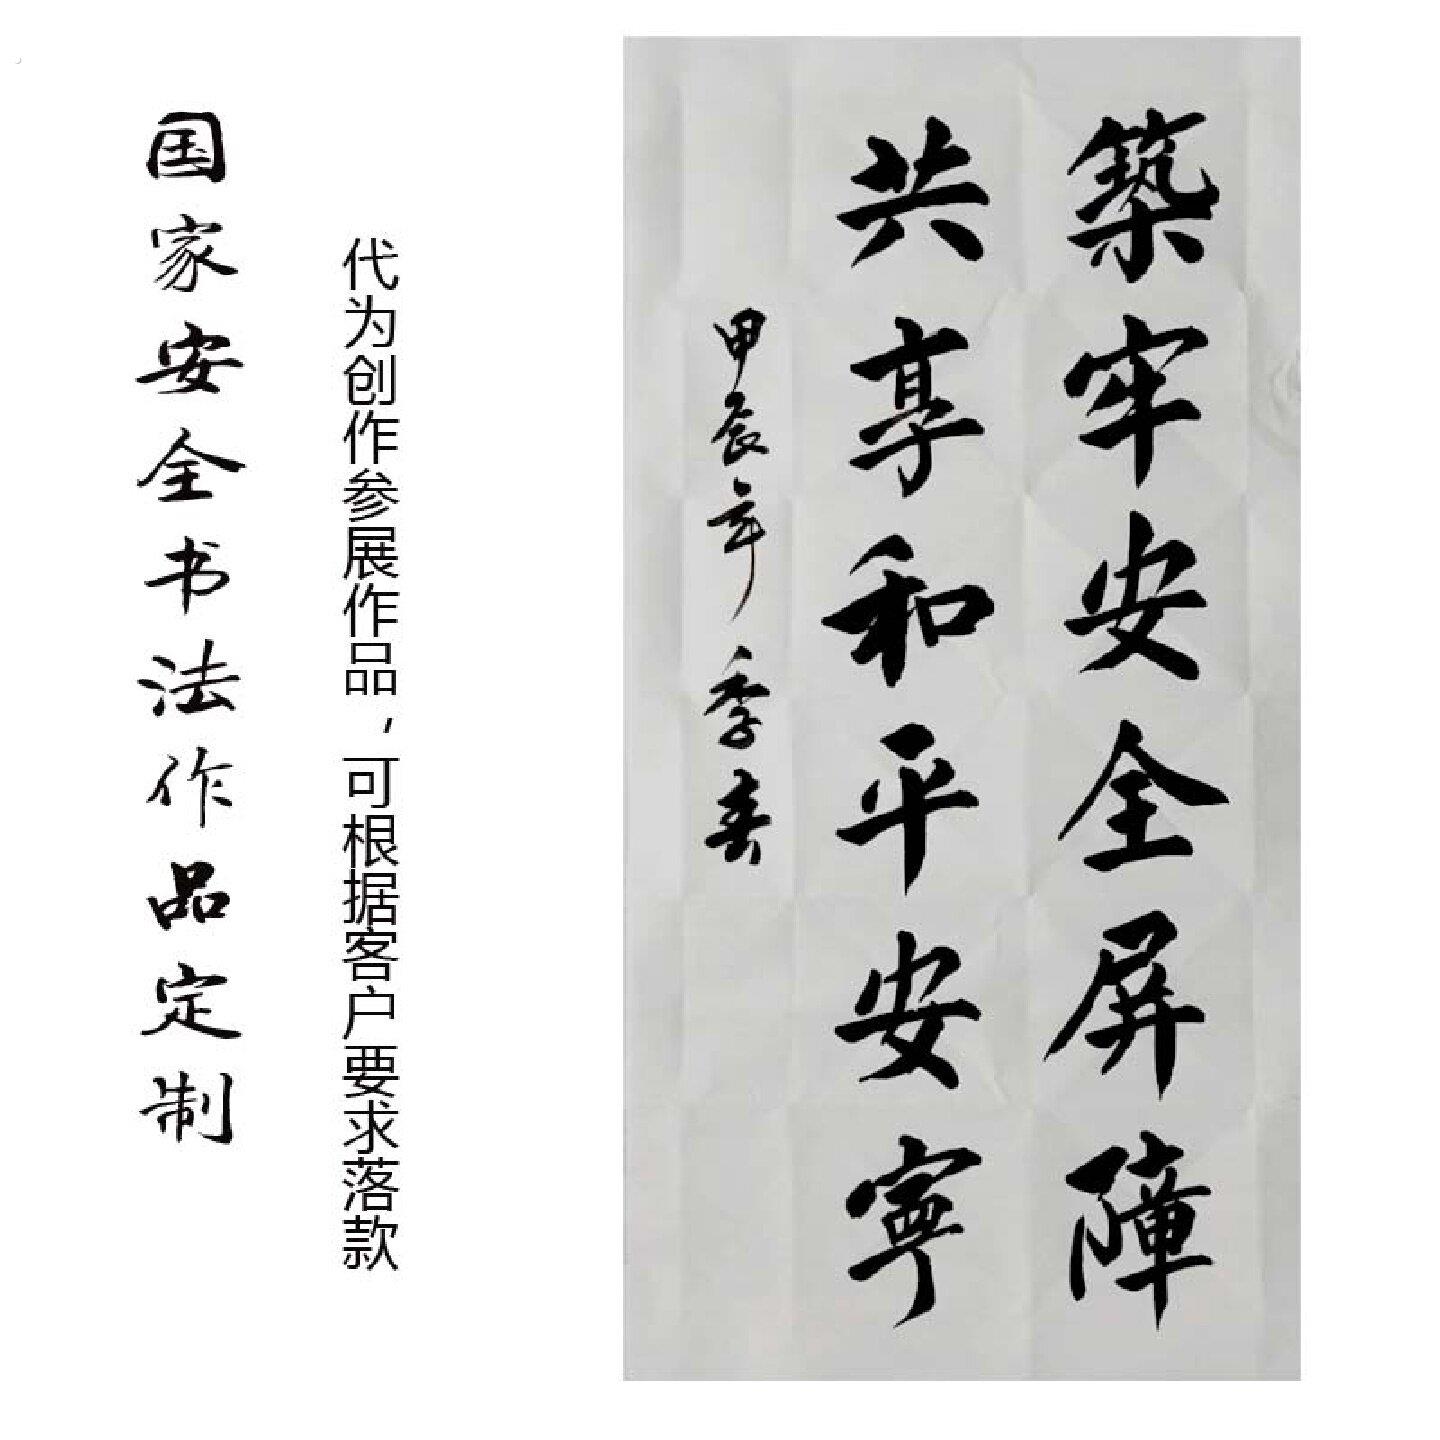 築牢安全屏障
共享和平安寧
甲辰年季春
代为创作参展作品，可根据客户要求落款
国家安全书法作品定制